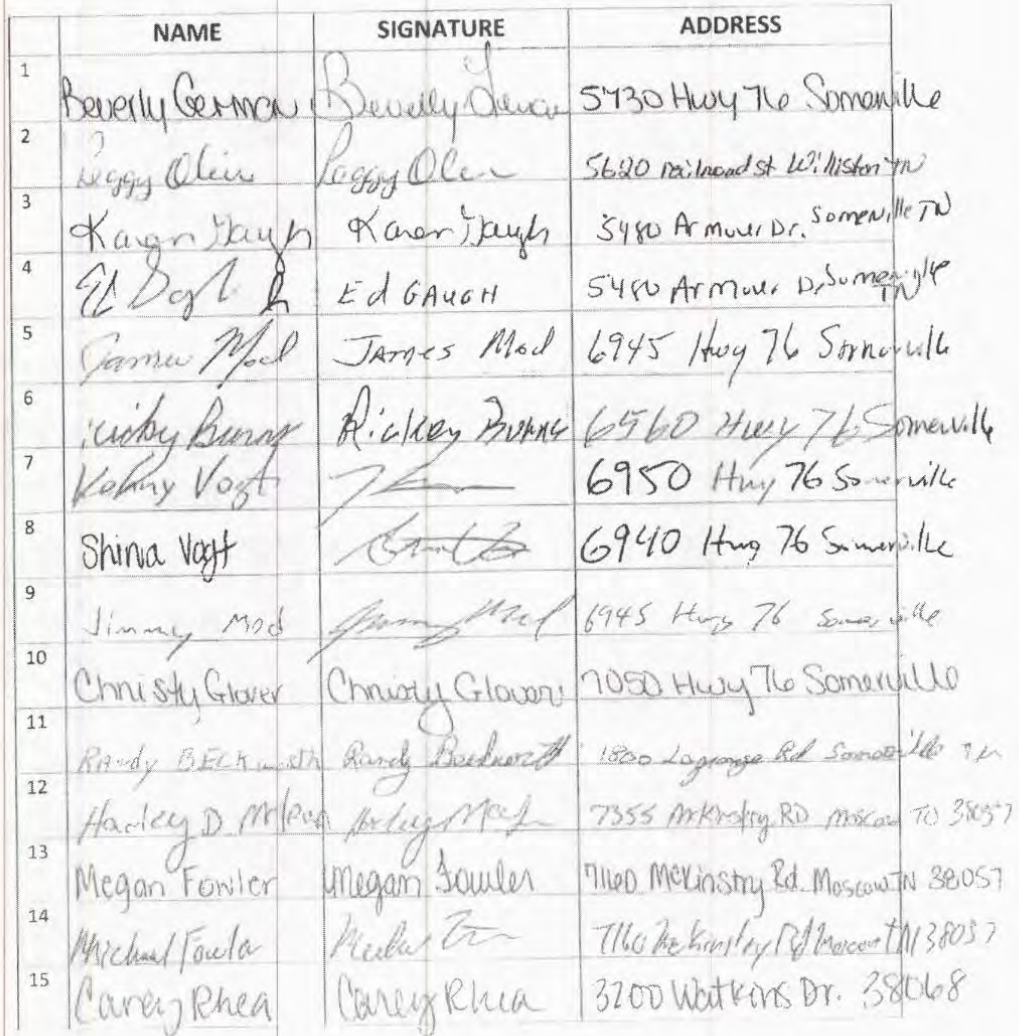 NAME SIGNATURE ADDRESS
1 Beverly German Beverly German 5730 Hwy 76 Somerville
2 Peggy Olin Peggy Olin 5620 railroad st Williston TN
3 Karen Gaugh Karen Gaugh 5480 Armour Dr. Somerville TN
4 Ed GAUGH 5480 Armour Dr Somerville TN
5 James Mod JAMES Mod 6945 Hwy 76 Somerville
6 Rickey 6560 Hwy 76 Somerville
7 Vogt 6950 Hwy 76 Somerville
8 Shina Vogt 6940 Hwy 76 Somerville
9 Jimmy Mod Jimmy Mod 6945 Hwy 76 Somerville
10 Christy Glover Christy Glover 7050 Hwy 76 Somerville
11 Randy BECKworth Randy Beckworth 1800 Lagrange Rd Somerville TN
12 Harley D Harley 7355 McKinstry RD Moscow TN 38057
13 Megan Fowler Megan Fowler 7160 McKinstry Rd. Moscow TN 38057
14 Michael Fowler 7160 McKinstry Rd Moscow TN 38057
15 Carey Rhea Carey Rhea 3200 Watkins Dr. 38068